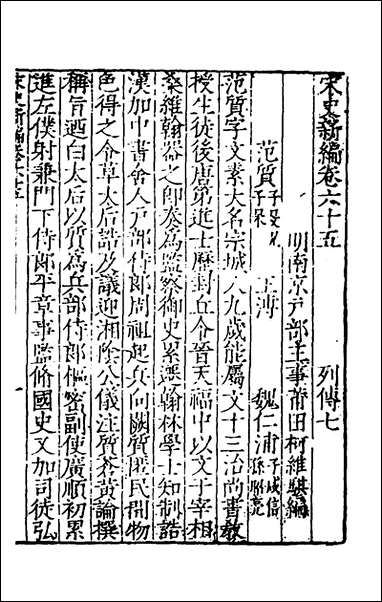 宋史新編卷六十五 列傳七
明南京戶部主事莆田柯維騏編
范質 子旻 兄子杲 王溥 魏仁浦 子咸信 孫昭亮
范質字文素大名宗城人九歲能屬文十三治尚書教
授生徒後唐第進士歷封丘令晉天福中以文干宰相
桑維翰器之即奏為監察御史累遷翰林學士知制誥
漢加中書舍人戶部侍郎周祖起兵向闕質匿民間物
色得之令草太后誥及議迎湘陰公儀注質蒼黃論撰
稱旨迺白太后以質為兵部侍郎樞密副使廣順初累
進左僕射兼門下侍郎平章事監脩國史又加司徒弘
宋史新編卷六十五